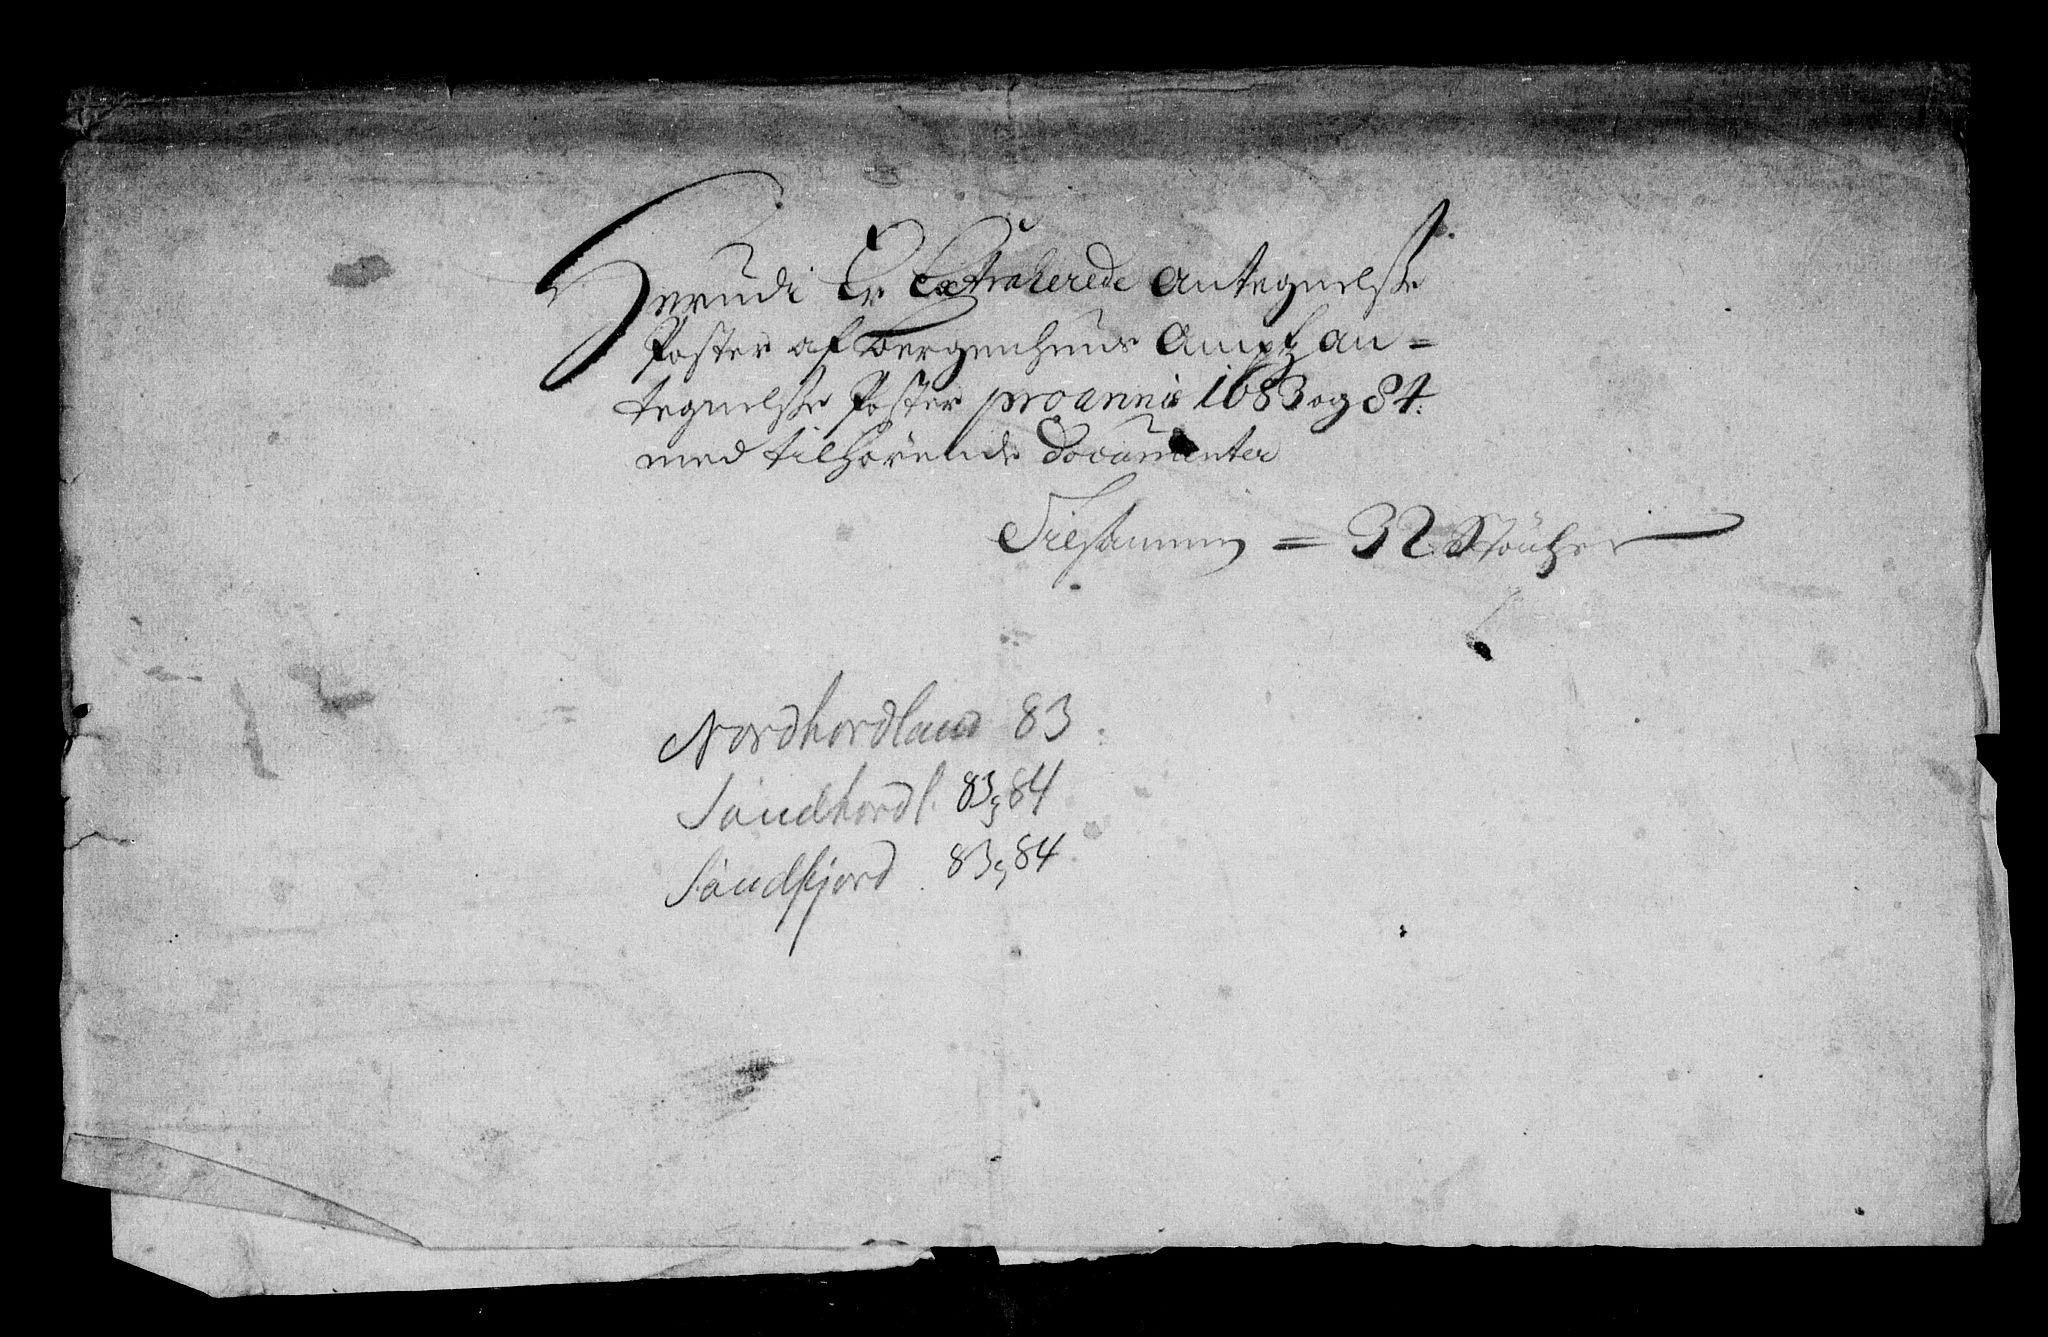 Herudi Er Extraherede Antegnelsse
Poster af Bergenhuus Ampts an=
tegnelsse Poster pro annis 1683 og 84:
med tilhørende Documenter
Tilsammen = 32 Støcher
Nordhordland 83
Søndhordl. 83, 84
Søndfjord 83, 84